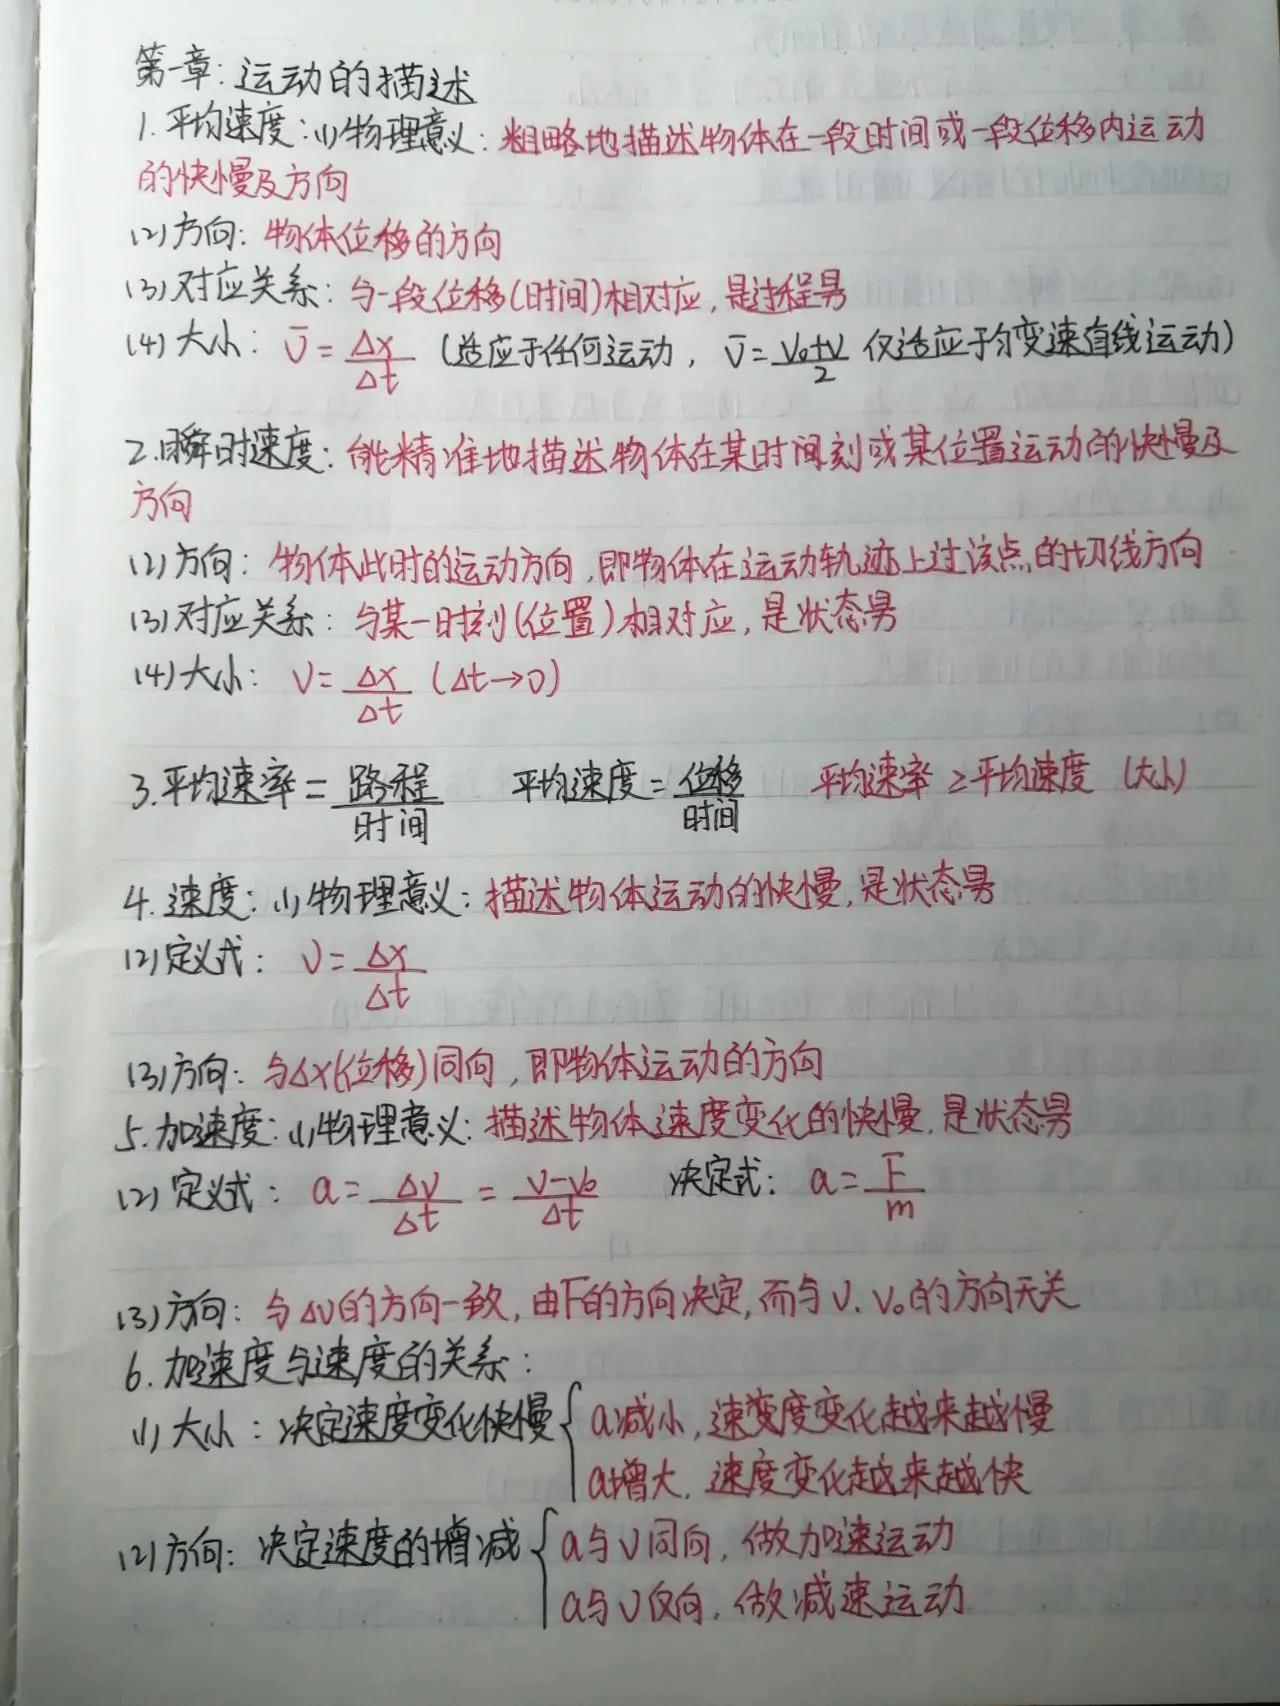 第一章:运动的描述
1.平均速度:(1)物理意义:粗略地描述物体在一段时间或一段位移内运动
的快慢及方向
(2)方向:物体位移的方向
(3)对应关系:与一段位移(时间)相对应,是过程量
(4)大小: v̄=Δx/Δt (适应于任何运动, v̄=(v₀+v)/2 仅适应于匀变速直线运动)
2.瞬时速度:能精准地描述物体在某时间刻或某位置运动的快慢及
方向
(2)方向:物体此时的运动方向,即物体在运动轨迹上过该点的切线方向
(3)对应关系:与某一时刻(位置)相对应,是状态量
(4)大小: v=Δx/Δt (Δt→0)
3.平均速率=路程/时间 平均速度=位移/时间 平均速率≥平均速度(大小)
4.速度:(1)物理意义:描述物体运动的快慢,是状态量
(2)定义式: v=Δx/Δt
(3)方向:与Δx(位移)同向,即物体运动的方向
5.加速度:(1)物理意义:描述物体速度变化的快慢,是状态量
(2)定义式: a=Δv/Δt=(v-v₀)/Δt 决定式: a=F/m
(3)方向:与Δv的方向一致,由F的方向决定,而与v、v₀的方向无关
6.加速度与速度的关系:
(1)大小:决定速度变化快慢{a减小,速变度变化越来越慢
a增大,速度变化越来越快
(2)方向:决定速度的增减{a与v同向,做加速运动
a与v反向,做减速运动